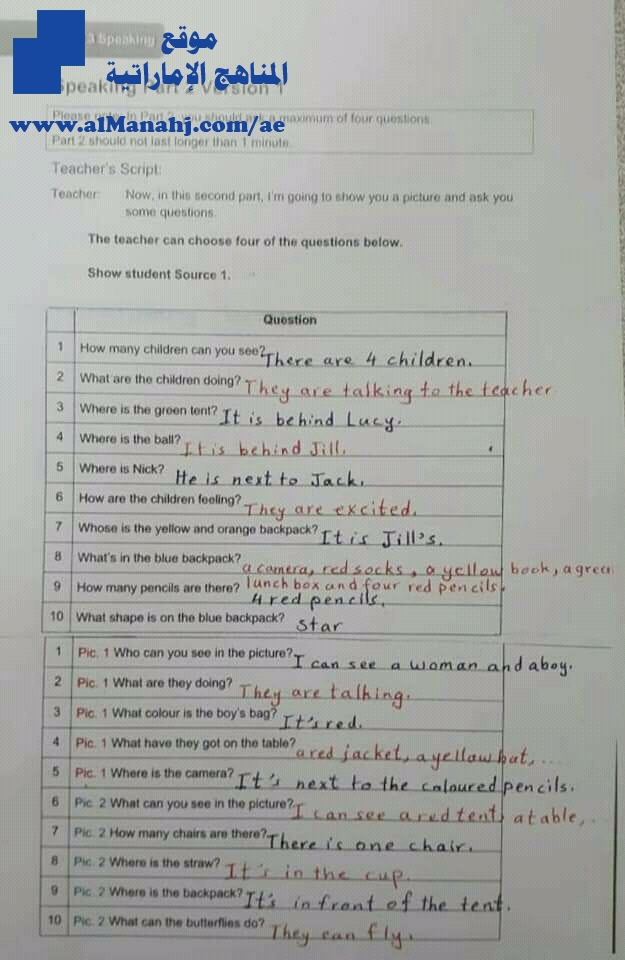 3 Speaking
موقع
المناهج الإماراتية
Speaking Part 2 Version 1
Please note: In Part 2, you should ask a maximum of four questions.
www.alManahj.com/ae
Part 2 should not last longer than 1 minute.
Teacher's Script:
Teacher: Now, in this second part, I'm going to show you a picture and ask you
some questions.
The teacher can choose four of the questions below.
Show student Source 1.
Question
1 How many children can you see? There are 4 children.
2 What are the children doing? They are talking to the teacher
3 Where is the green tent? It is behind Lucy.
4 Where is the ball? It is behind Jill.
5 Where is Nick? He is next to Jack.
6 How are the children feeling? They are excited.
7 Whose is the yellow and orange backpack? It is Jill's.
8 What's in the blue backpack? a camera, red socks, a yellow book, a green
lunch box and four red pencils.
9 How many pencils are there? 4 red pencils.
10 What shape is on the blue backpack? star
1 Pic. 1 Who can you see in the picture? I can see a woman and a boy.
2 Pic. 1 What are they doing? They are talking.
3 Pic. 1 What colour is the boy's bag? It's red.
4 Pic. 1 What have they got on the table? a red jacket, a yellow hat, ...
5 Pic. 1 Where is the camera? It's next to the coloured pencils.
6 Pic. 2 What can you see in the picture? I can see a red tent, a table, ..
7 Pic. 2 How many chairs are there? There is one chair.
8 Pic. 2 Where is the straw? It's in the cup.
9 Pic. 2 Where is the backpack? It's in front of the tent.
10 Pic. 2 What can the butterflies do? They can fly.